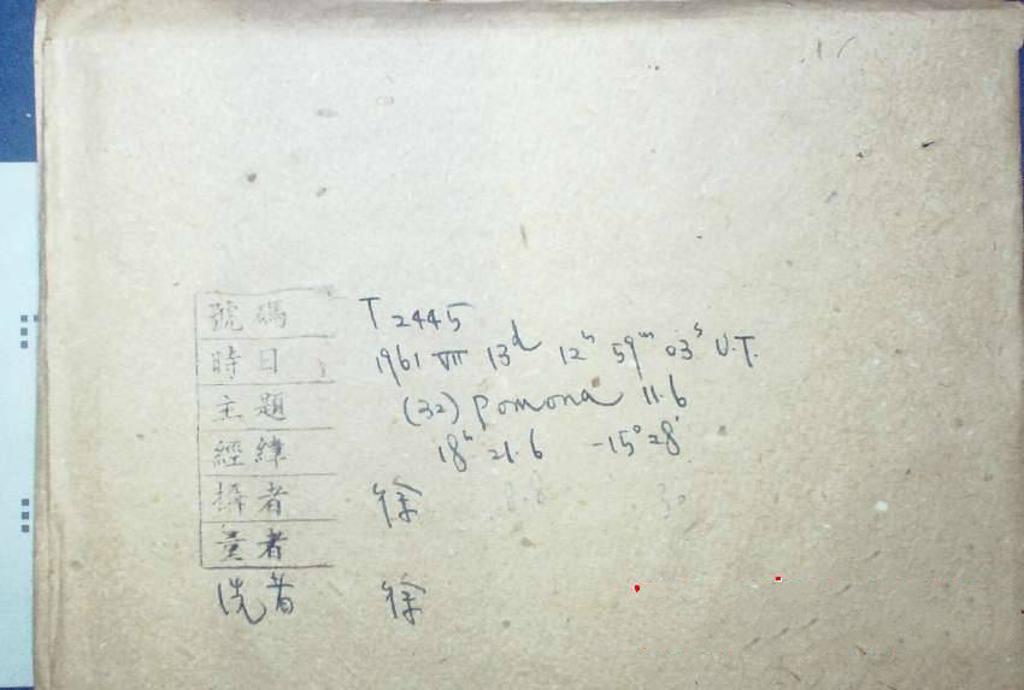 號碼 T 2445
時日 1961 VII 13d 12h 59m 03s U.T.
主題 (32) Pomona 11.6
經緯 18h 21.6 -15°28'
攝者 徐
量者
洗者 徐